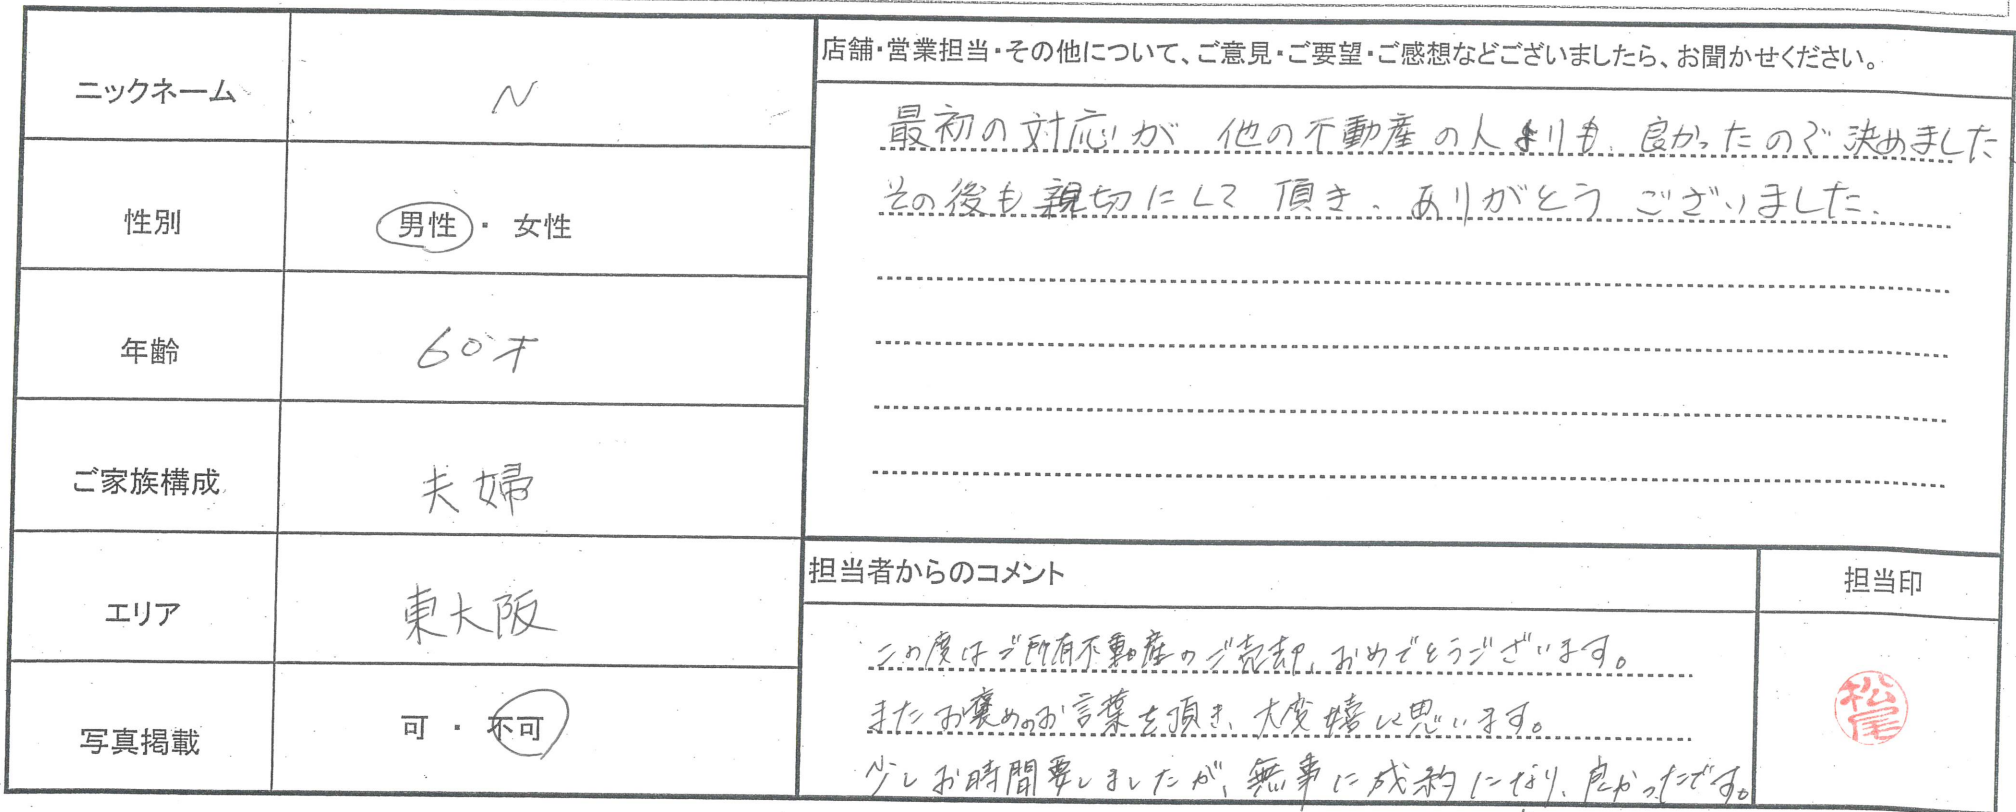 ニックネーム
N
性別
男性 ・ 女性
年齢
60才
ご家族構成
夫婦
エリア
東大阪
写真掲載
可 ・ 不可
店舗・営業担当・その他について、ご意見・ご要望・ご感想などございましたら、お聞かせください。
最初の対応が 他の不動産の人よりも、良かったので決めました
その後も親切にして頂き、ありがとうございました。
担当者からのコメント
この度はご所有不動産のご売却、おめでとうございます。
またお褒めのお言葉を頂き、大変嬉しく思います。
少しお時間要しましたが、無事に成約になり、良かったです。
担当印
松尾